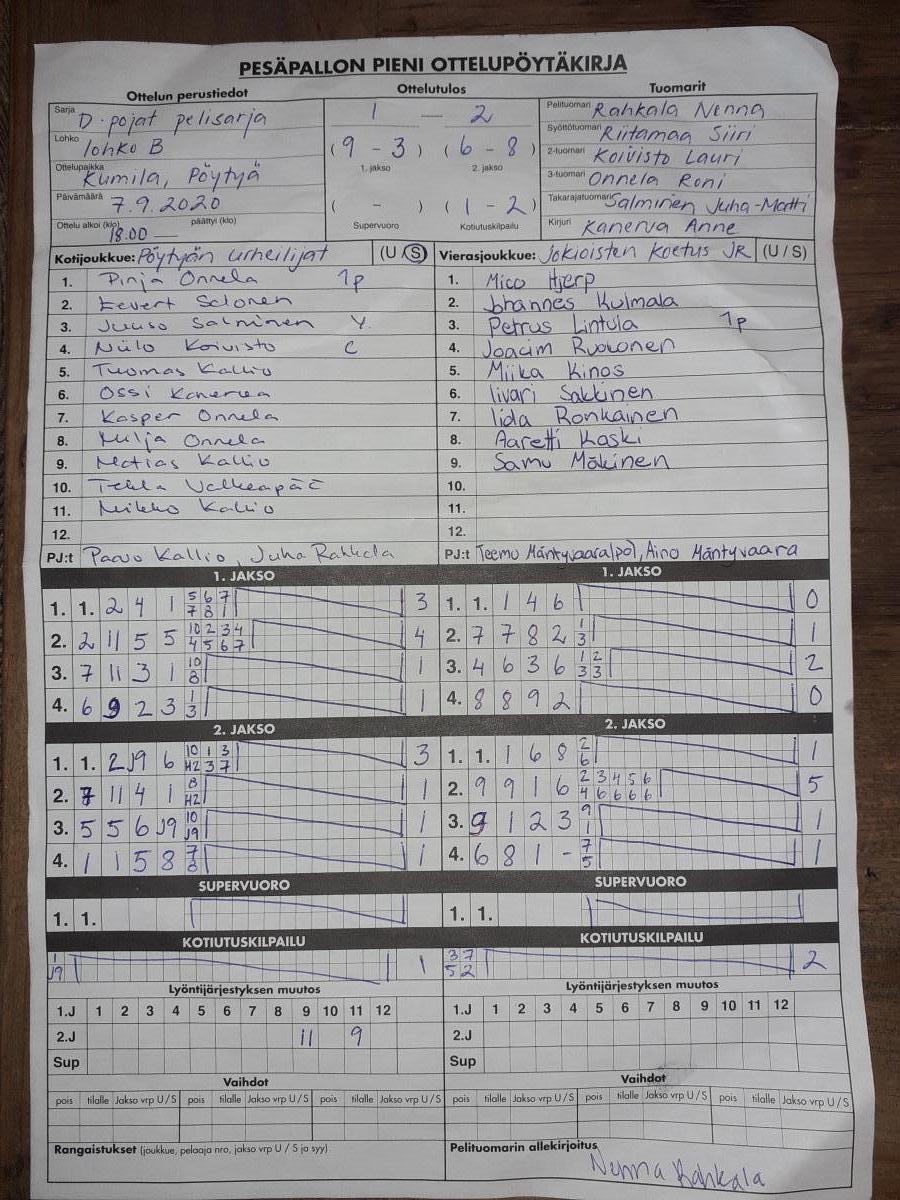 PESÄPALLON PIENI OTTELUPÖYTÄKIRJA
Ottelun perustiedot
Sarja D-pojat pelisarja
Lohko lohko B
Ottelupaikka Kumila, Pöytyä
Päivämäärä 7.9.2020
Ottelu alkoi (klo) 18.00 — päättyi (klo)
Ottelutulos
1 — 2
(9 - 3) (6 - 8)
1. jakso 2. jakso
( - ) (1 - 2)
Supervuoro Kotiutuskilpailu
Tuomarit
Pelituomari Rahkala Nenna
Syöttötuomari Riitamaa Siiri
2-tuomari Koivisto Lauri
3-tuomari Onnela Roni
Takarajatuomari Salminen Juha-Matti
Kirjuri Kanerva Anne
Kotijoukkue: Pöytyän urheilijat (U / S)
1. Pinja Onnela 1p
2. Eevert Salonen
3. Juuso Salminen V.
4. Niilo Koivisto C
5. Tuomas Kallio
6. Ossi Kanerva
7. Kasper Onnela
8. Milja Onnela
9. Matias Kallio
10. Tekla Valkeapää
11. Mikko Kallio
12.
PJ:t Paavo Kallio, Juha Rahkala
Vierasjoukkue: Jokioisten Koetus JR (U / S)
1. Mico Hjerp
2. Johannes Kulmala
3. Petrus Lintula 1p
4. Joacim Ruokonen
5. Miika Kinos
6. Iivari Sakkinen
7. Iida Ronkainen
8. Aaretti Kaski
9. Samu Mäkinen
10.
11.
12.
PJ:t Teemu Mäntyvaara(po), Aino Mäntyvaara
1. JAKSO
1. 1. 2 4 1 5 6 7 3
7 8 1
2. 2 11 5 5 10 2 3 4 4
4 5 6 7
3. 7 11 3 1 10 1
8
4. 6 9 2 3 1 1
3
1. JAKSO
1. 1. 1 4 6 0
2. 7 7 8 2 1 1
3
3. 4 6 3 6 1 2 2
3 3
4. 8 8 9 2 0
2. JAKSO
1. 1. 2 J9 6 10 1 3 3
H2 3 7
2. 7 11 4 1 8 1
H2
3. 5 5 6 J9 10 1
J9
4. 1 1 5 8 7 1
8
2. JAKSO
1. 1. 1 6 8 2 1
6
2. 9 9 1 6 2 3 4 5 6 5
4 6 6 6 6
3. 9 1 2 3 9 1
1
4. 6 8 1 - 7 1
5
SUPERVUORO
1. 1.
SUPERVUORO
1. 1.
KOTIUTUSKILPAILU
1 1
J9
KOTIUTUSKILPAILU
3 7 2
5 2
Lyöntijärjestyksen muutos
1.J 1 2 3 4 5 6 7 8 9 10 11 12
2.J 11 9
Sup
Lyöntijärjestyksen muutos
1.J 1 2 3 4 5 6 7 8 9 10 11 12
2.J
Sup
Vaihdot
pois tilalle Jakso vrp U / S pois tilalle Jakso vrp U / S pois tilalle Jakso vrp U / S
Vaihdot
pois tilalle Jakso vrp U / S pois tilalle Jakso vrp U / S pois tilalle Jakso vrp U / S
Rangaistukset (joukkue, pelaaja nro, jakso vrp U / S ja syy)
Pelituomarin allekirjoitus
Nenna Rahkala